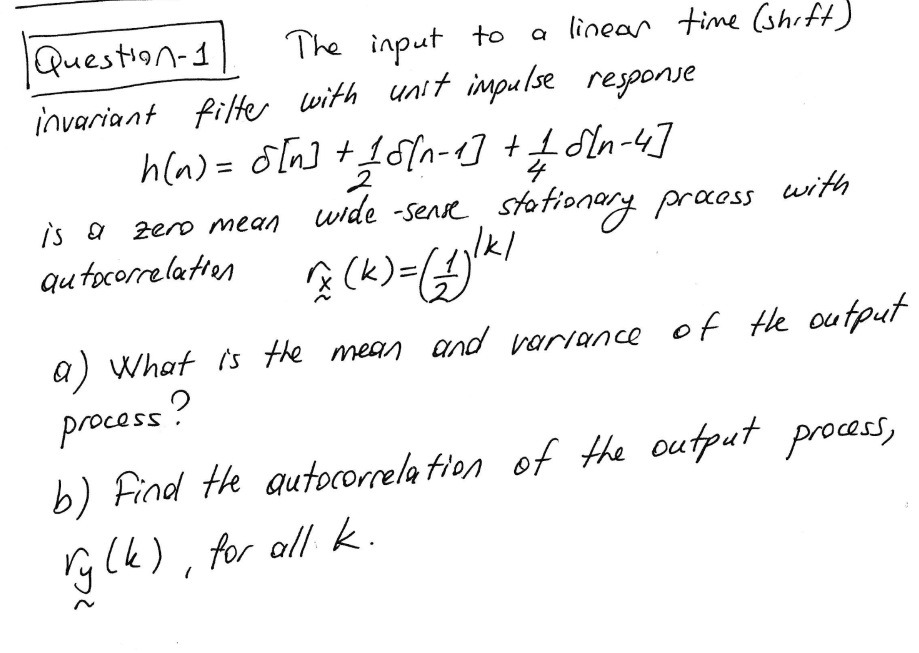 Question-1 The input to a linear time (shift)
invariant filter with unit impulse response
h(n) = δ[n] + 1/2 δ[n-1] + 1/4 δ[n-4]
is a zero mean wide-sense stationary process with
autocorrelation r_x(k) = (1/2)^|k|
a) What is the mean and variance of the output
process?
b) Find the autocorrelation of the output process,
r_y(k), for all k.